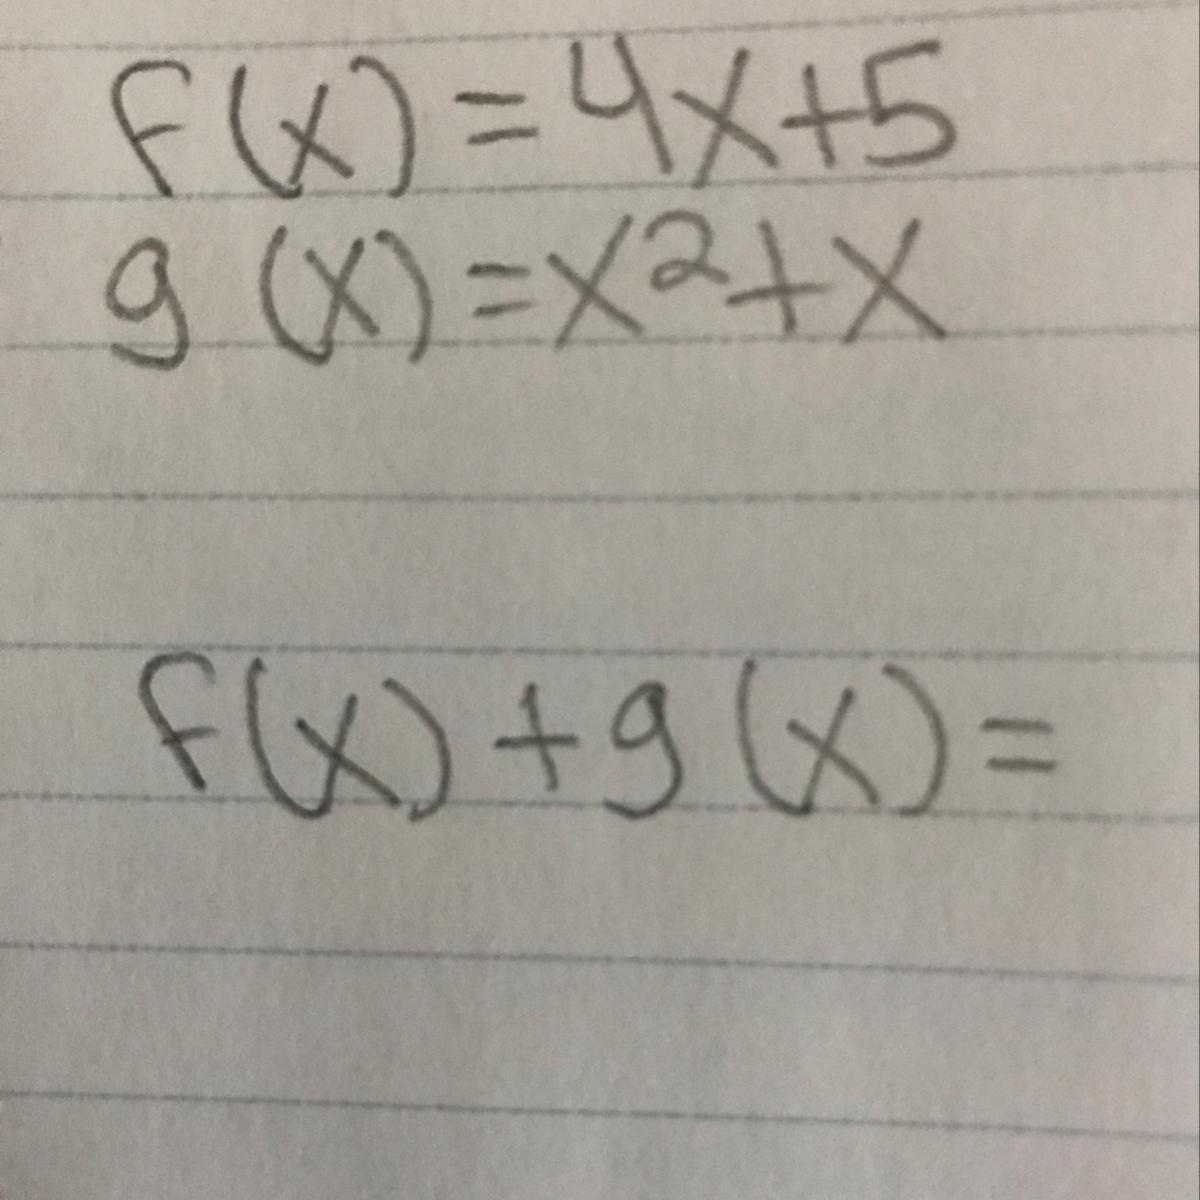 f(x)=4x+5
g(x)=x²+x
f(x)+g(x)=